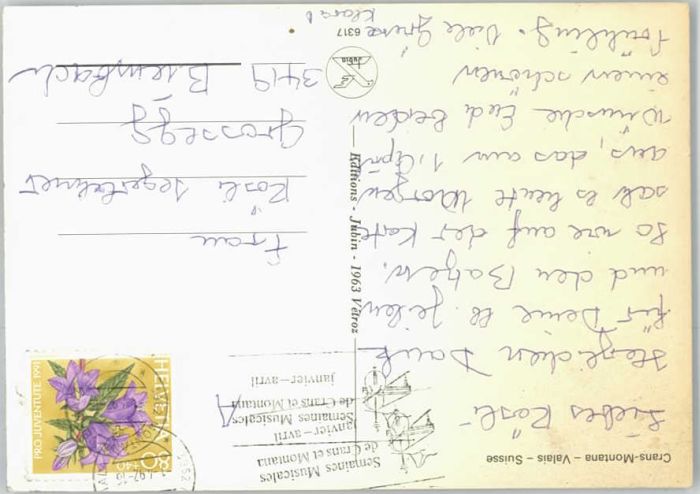 Crans-Montana – Valais – Suisse
Liebes Rösli
Herzlichen Dank
für Deine lb. Zeilen
und den Batzen.
So wie auf der Karte
sah es heute Morgen
aus, das am 1. April
Wünsche Euch beiden
einen schönen
Frühling. Viele Grüsse
Klara
Editions - Jubin - 1963 Vétroz
Jubin
6317
Semaines Musicales
de Crans et Montana
janvier–avril
Semaines Musicales
de Crans et Montana
janvier–avril
A
PRO JUVENTUTE 1991
HELVETIA
80+40
Frau
Rösli
Grossegg
3419 Biembach